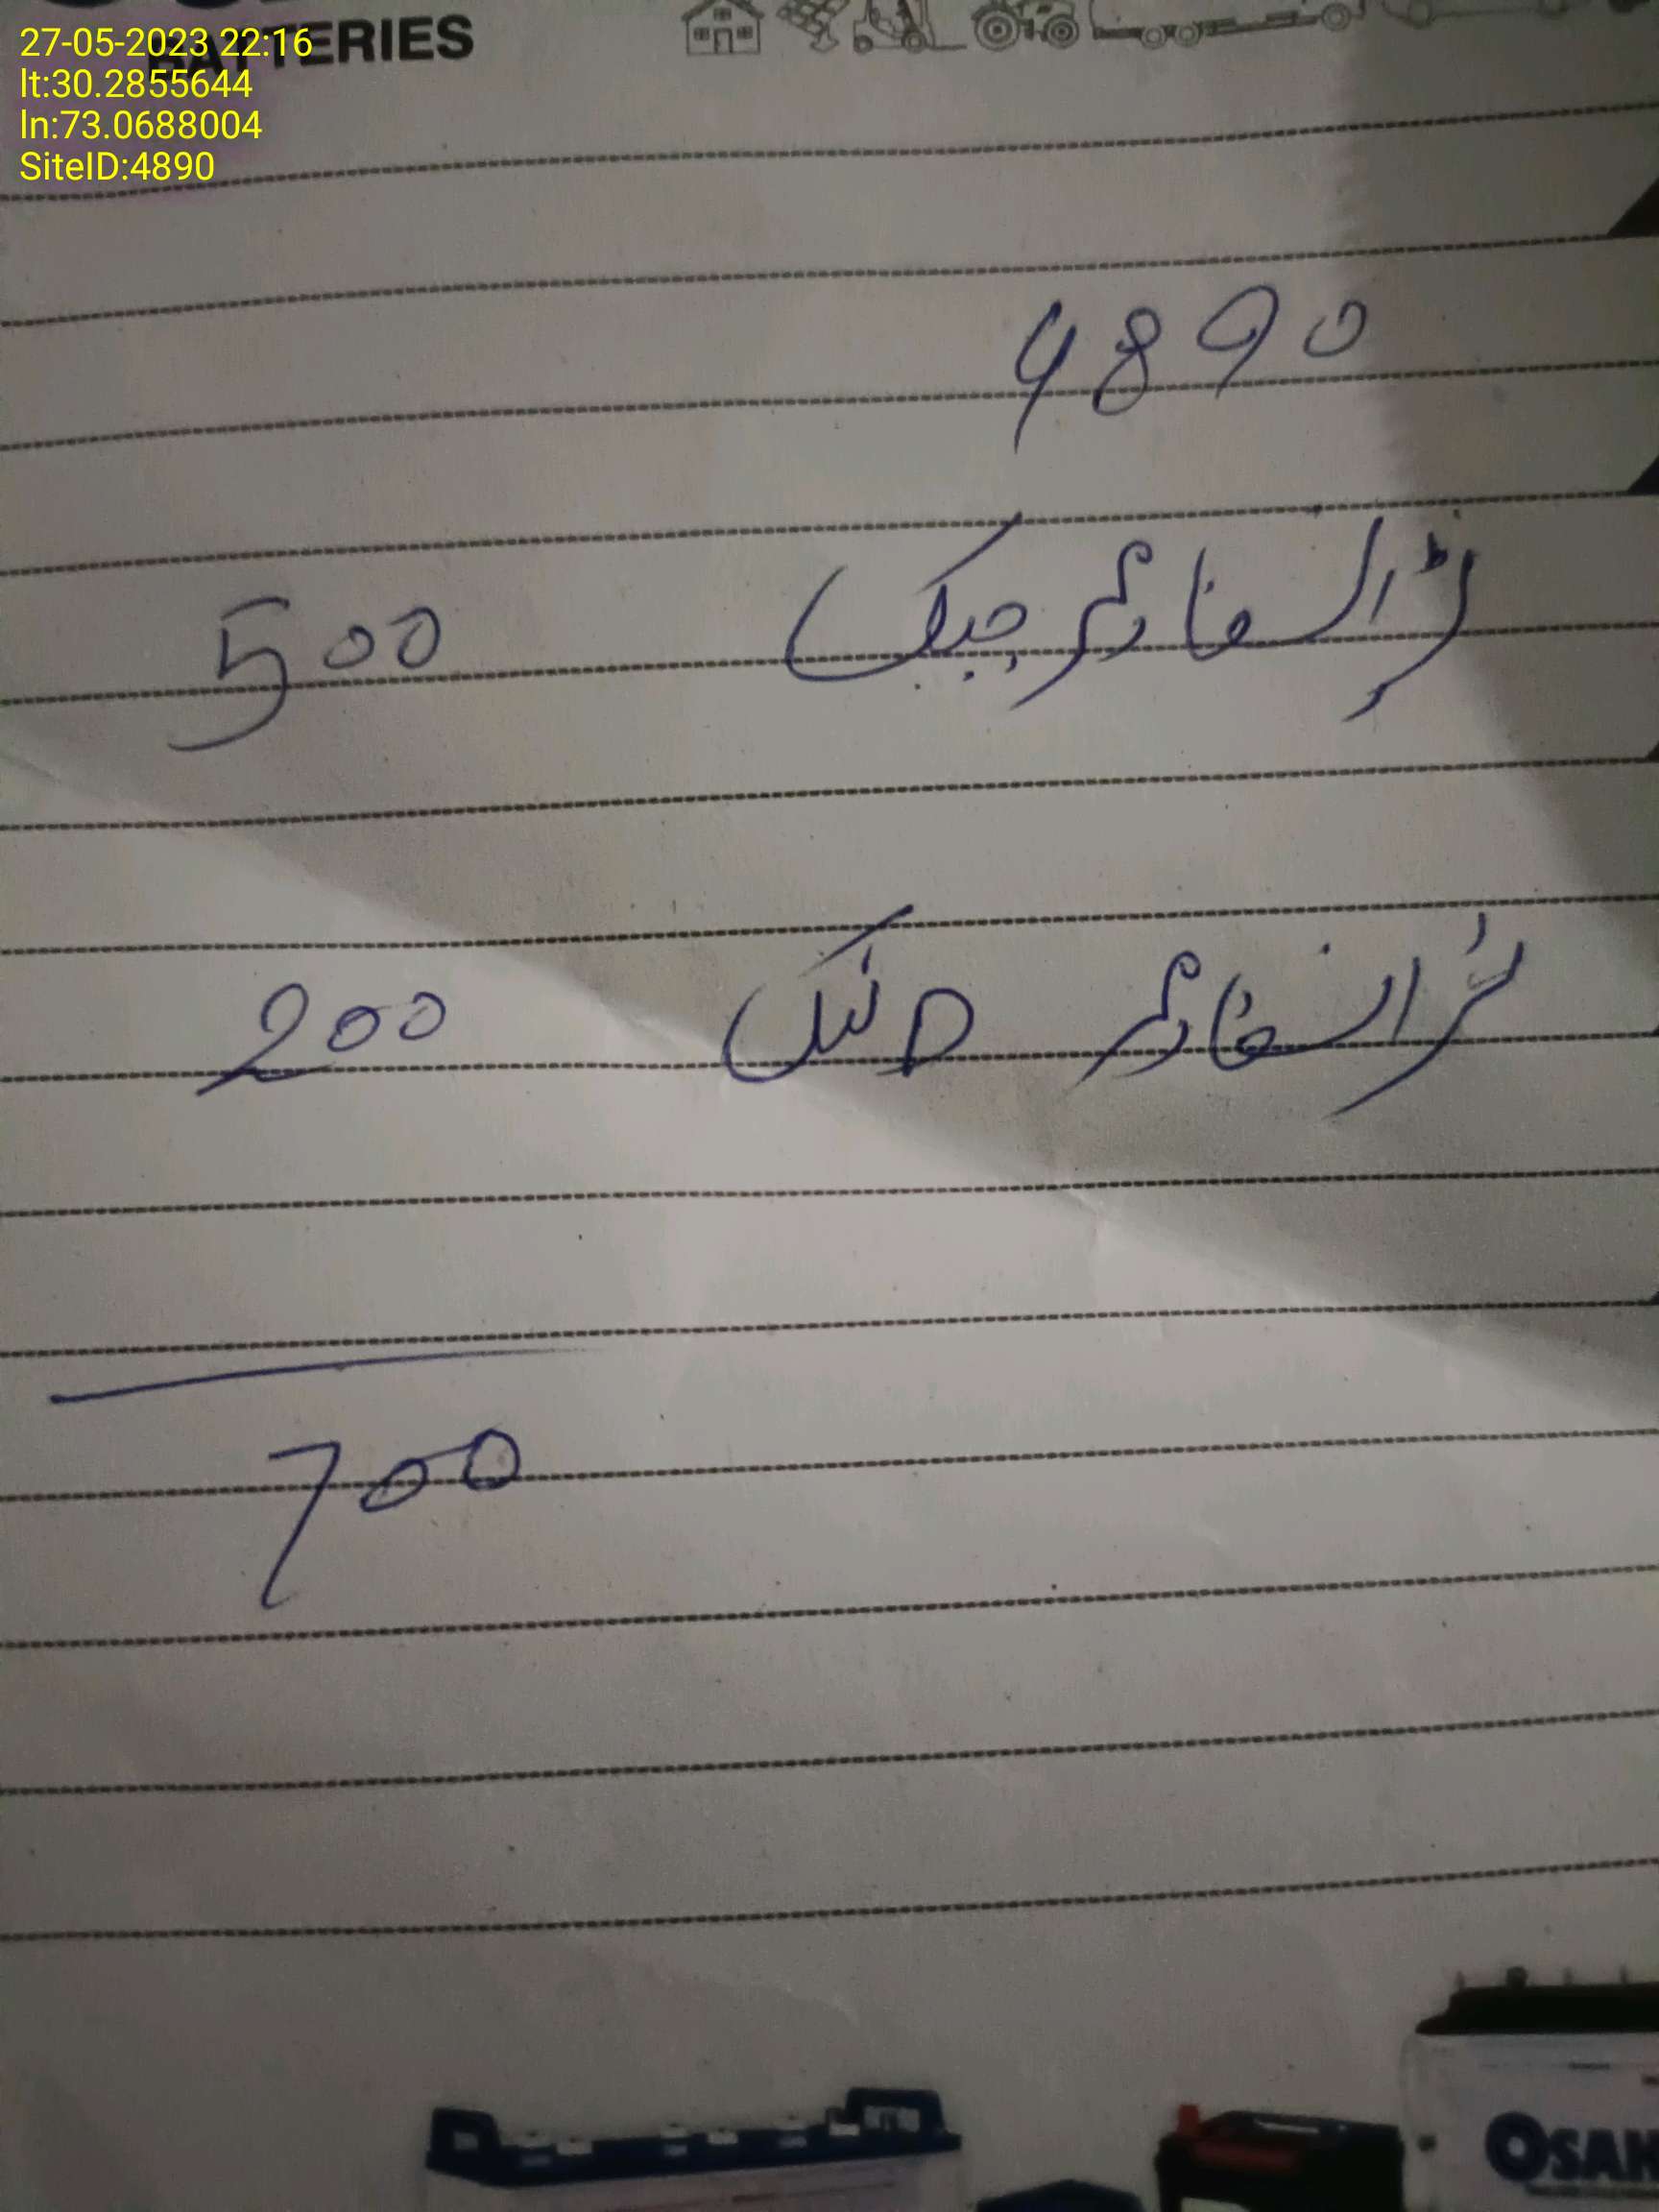 27-05-2023 22:16
lt:30.2855644
ln:73.0688004
SiteID:4890
BATTERIES
4890
ٹرانسفارمر چیک 500
ٹرانسفارمر 200
700
OSAK